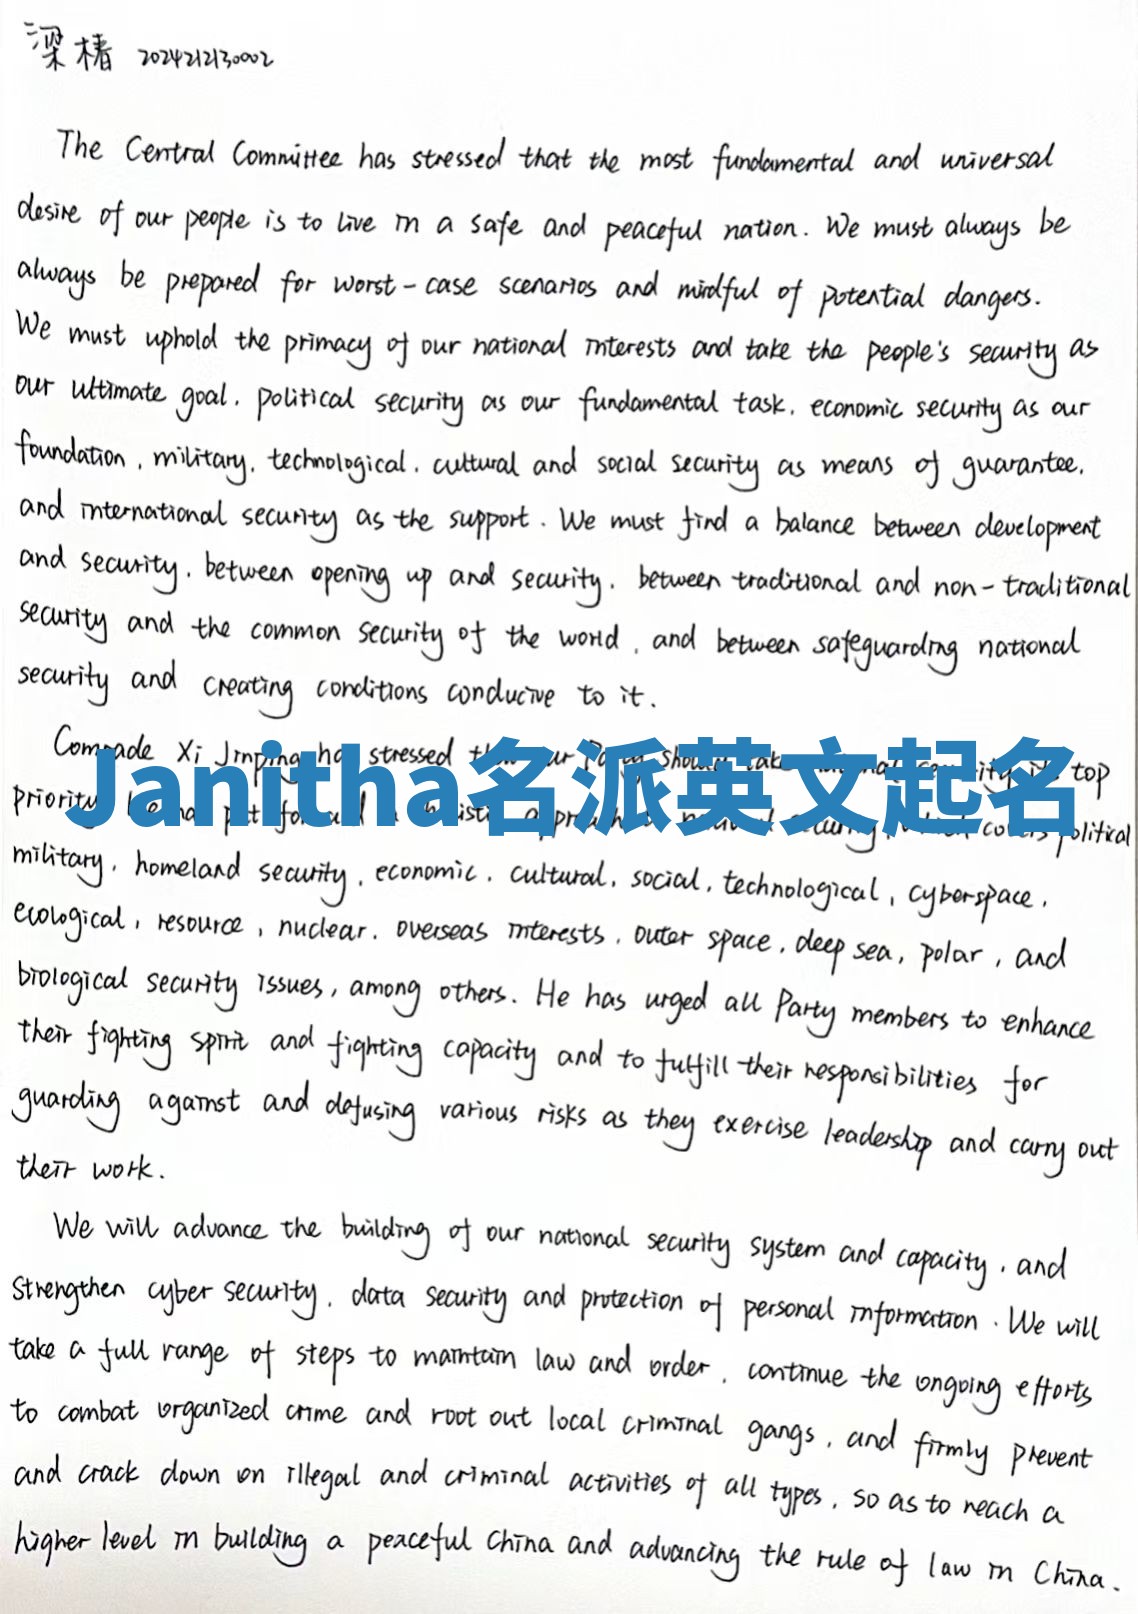 梁椿 2024212130002
The Central Committee has stressed that the most fundamental and universal
desire of our people is to live in a safe and peaceful nation. We must always be
always be prepared for worst-case scenarios and mindful of potential dangers.
We must uphold the primacy of our national interests and take the people's security as
our ultimate goal, political security as our fundamental task, economic security as our
foundation, military, technological, cultural and social security as means of guarantee,
and international security as the support. We must find a balance between development
and security, between opening up and security, between traditional and non-traditional
security and the common security of the world, and between safeguarding national
security and creating conditions conducive to it.
Comrade Xi Jinping has stressed top
Janitha名派英文起名
priority political
military, homeland security, economic, cultural, social, technological, cyberspace,
ecological, resource, nuclear, overseas interests, outer space, deep sea, polar, and
biological security issues, among others. He has urged all Party members to enhance
their fighting spirit and fighting capacity and to fulfill their responsibilities for
guarding against and defusing various risks as they exercise leadership and carry out
their work.
We will advance the building of our national security system and capacity, and
strengthen cyber security, data security and protection of personal information. We will
take a full range of steps to maintain law and order, continue the ongoing efforts
to combat organized crime and root out local criminal gangs, and firmly prevent
and crack down on illegal and criminal activities of all types, so as to reach a
higher level in building a peaceful China and advancing the rule of law in China.